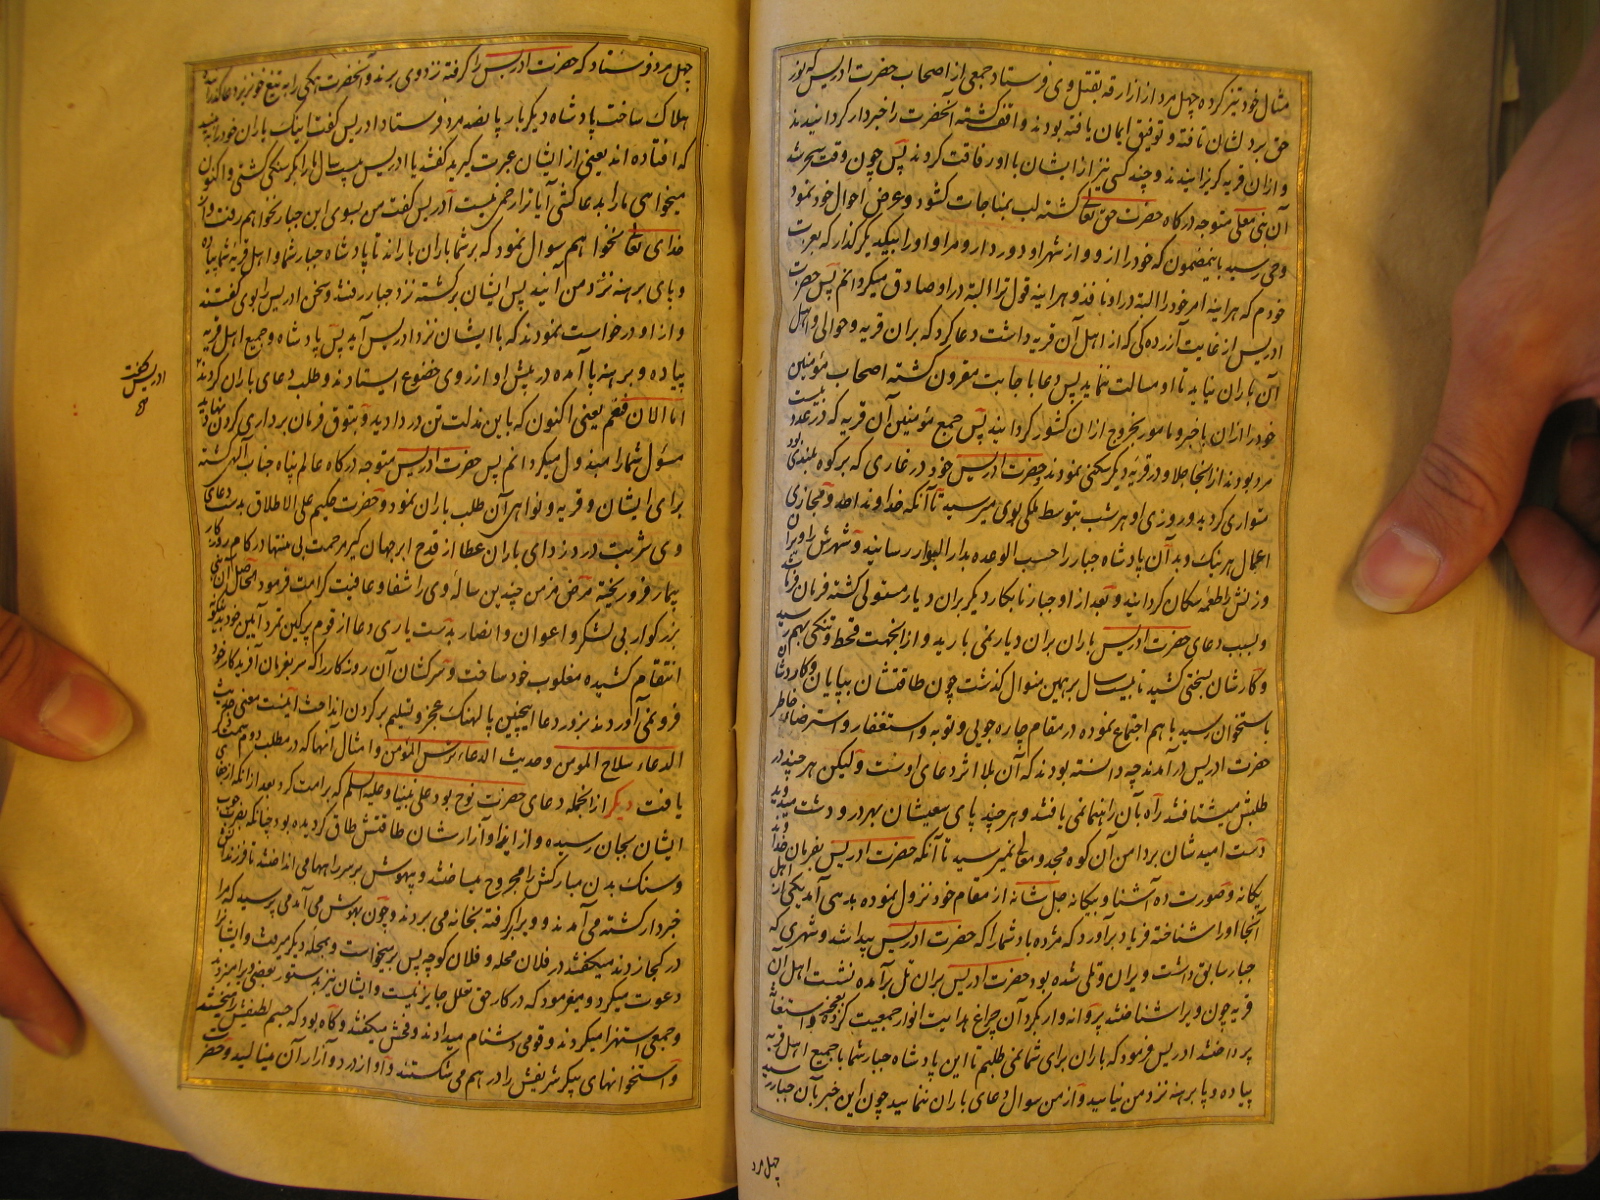 مثال خود تیز کرده چهل مرد از ازارقه بقتل وی فرستاد جمعی از اصحاب حضرت ادریس که نور
حق بر دلشان تافته و توفیق ایمان یافته بودند واقف گشته آنحضرت را خبردار گردانیدند
و ازان قریه گریزانیدند و چند کسی نیز از ایشان با او رفاقت کردند پس چون وقت سحر شد
آن متوجه درگاه حضرت حق تعالی گشته لب بمناجات کشود و عرض احوال خود نمود
وحی رسید باینمضمون که خود را ازو و از شهر او دور دار و مرا و او را بیکدیگر گذار که بعزت
خودم که هراینه امر خود را البته در او نافذ و هراینه قول ترا البته در او صادق میگردانم پس حضرت
ادریس از غایت آزردگی که از اهل آن قریه داشت دعا کرد که بران قریه و حوالی و اهل
آن باران نیاید تا او مسالت ننماید پس دعا باجابت مقرون گشته اصحاب مؤمنین
خود را ازان باخبر و مامور بخروج ازان کشور گردانید پس جمیع مؤمنین آن قریه که در عدد بیست
مرد بودند از انجا جلا و در قریهٔ دیگر سکنی نمودند حضرت ادریس خود در غاری که بر کوه بلندی بود
متواری گردید و روزی او هر شب بتوسط ملکی بوی میرسید تا آنکه خداوند احد و مجازی
اعمال هر نیک و بد آن پادشاه جبار را حسب الوعده بدار البوار رسانید و شهرش را ویران
و زنش را طعمهٔ سگان گردانید و بعد از او جبار نابکار دیگر بران دیار مستولی گشته فرمان فرما شد
و بسبب دعای حضرت ادریس باران بران دیار نمی بارید و ازانجهت قحط و تنگی بهم رسید
و کارشان بسختی کشید تا بیست سال برهمین منوال گذشت چون طاقتشان بپایان و کارد شان
باستخوان رسید با هم اجتماع نموده در مقام چاره جویی و توبه و استغفار و استرضای خاطر
حضرت ادریس در آمدند چه دانسته بودند که آن بلا اثر دعای اوست ولیکن هر چند در
طلبش میشتافتند راه بآن راهنما نمی یافتند و هر چند پای سعیشان بهر در و دشت میدوید
دست امیدشان بردامن آن کوه مجد و معالی نمیرسید تا آنکه حضرت ادریس بفرمان خدا
یگانه و صورت ده آشنا و بیگانه جل شانه از مقام خود نزول نموده بدهی آمد یکی از اهل
آنجا او را شناخته فریاد برآورد که مژده باد شما را که حضرت ادریس پیدا شد و شهری که
جبار سابق داشت ویران و تلی شده بود حضرت ادریس بران تل برآمده نشست اهل آن
قریه چون ویرا شناختند پروانه وار بگرد آن چراغ هدایت انوار جمعیت کرده بعجز و استغاثه
پرداختند ادریس فرمود که باران برای شما نمی طلبم تا این پادشاه جبار شما با جمیع اهل قریه
پیاده و پا برهنه نزد من نیایید و از من سوال دعای باران ننمایید چون این خبر بآن جبار رسید
چهل مرد
چهل مرد فرستاد که حضرت ادریس را گرفته نزد وی برند و آنحضرت همگی را به تیغ خونریز دعا گذرانیده
هلاک ساخت پادشاه دیگر بار پانصد مرد فرستاد ادریس گفت اینک یاران خود را به بینید
که افتاده اند یعنی از ایشان عبرت گیرید گفتند یا ادریس بیست سال ما را بگرسنگی کشتی و اکنون
میخواهی ما را بدعا کشی آیا ترا رحم نیست ادریس گفت من بسوی این جبار نخواهم رفت و از
خدای تعالی نخواهم سوال نمود که بر شما باران باراند تا پادشاه جبار شما و اهل قریهٔ شما پیاده
و پای برهنه نزد من آیند پس ایشان برگشته نزد جبار رفتند و سخن ادریس را بوی گفتند
و از او درخواست نمودند که با ایشان نزد ادریس آید پس پادشاه و جمیع اهل قریه
پیاده و برهنه پا آمده در پیش او از روی خضوع ایستادند و طلب دعای باران کردند
ادریس گفت
اما الان فنعم یعنی اکنون که باین مذلت تن در دادید و بتوق فرمان برداری گردن نهادید
مسؤل شما را مبذول میگردانم پس حضرت ادریس متوجه درگاه عالم پناه جناب آلهی گشته
برای ایشان و قریه و نواهی آن طلب باران نمود و حضرت حکیم علی الاطلاق بدست دعای
وی شربت در و زدای باران عطا از قدح ابر جهان گیر مرحمت بی منتها در کام روزگار
بیمار فرو ریخته مرض مزمن چندین سالهٔ وی را شفا و عافیت کرامت فرمود الحاصل آن نبی
بزرگوار بی لشکر و اعوان و انصار بدست یاری دعا از قوم پرکین تمرد آیین خود بنیکو
انتقام کشیده مغلوب خود ساخت و سرکشان آن روزگار را که سر بفرمان آفریدگار خود
فرو نمی آوردند بزور دعا اینچنین پالهنک عجز و تسلیم بر گردن انداخت اینست معنی حدیث
الدعاء سلاح المؤمن و حدیث الدعاء ترس المؤمن و امثال آنها که در مطلب دوم
یافت دیگر ازانجمله دعای حضرت نوح بود علی نبینا و علیه السلم که بر امت کرد بعد ازانکه از جفای
ایشان بجان رسیده و از ایذا و آزارشان طاقتش طاق گردیده بود چنانکه بضرب چوب
و سنک بدن مبارکش را مجروح میساختند و بیهوش بر سر راهها می انداختند تا فرزندانش
خبردار گشته می آمدند و ویرا برگرفته بخانه می بردند و چون بهوش می آمد می پرسید که مرا
در کجا زدند میگفتند در فلان محله و فلان کوچه پس برمیخاست و بمحلهٔ دیگر میرفت و ایشانرا
دعوت میکرد و میفرمود که در کار حق تعلل جایز نیست و ایشان نیز بدستور بعضی ویرا میزدند
و جمعی استهزا میکردند و قومی دشنام میدادند و فحش میگفتند و گاه بود که جسم لطیفش میخستند
و استخوانهای پیکر شریفش را در هم می شکستند و او از درد و آزار آن مینالید و حضرت